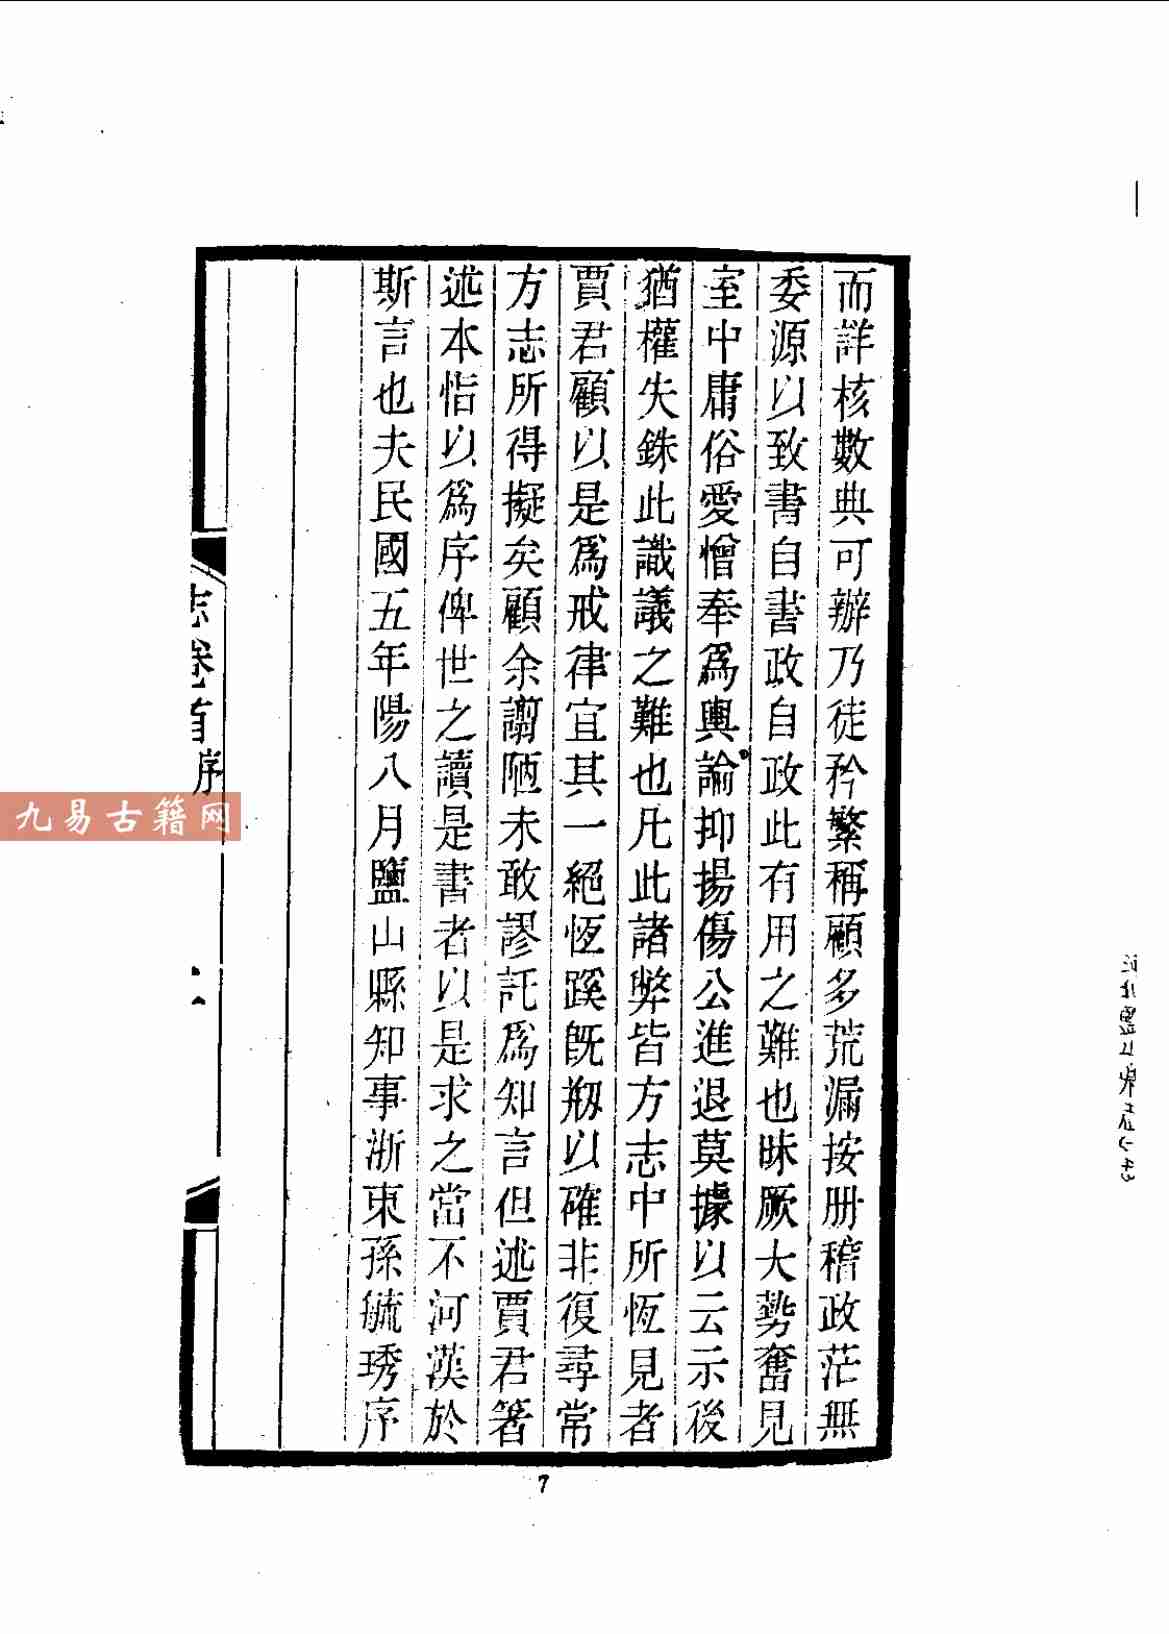 而詳核數典可辦乃徒矜繁稱顧多荒漏按册稽政茫無
委源以致書自書政自政此有用之難也昧厥大勢奮見
室中庸俗愛憎奉爲輿論抑揚傷公進退莫據以云示後
猶權失銖此識議之難也凡此諸弊皆方志中所恆見者
賈君顧以是爲戒律宜其一絕恆蹊旣剏以確非復尋常
方志所得擬矣顧余謭陋未敢謬託爲知言但述賈君箸
述本恉以爲序俾世之讀是書者以是求之當不河漢於
斯言也夫民國五年陽八月鹽山縣知事浙東孫毓琇序
志卷首
序
7
九易古籍网